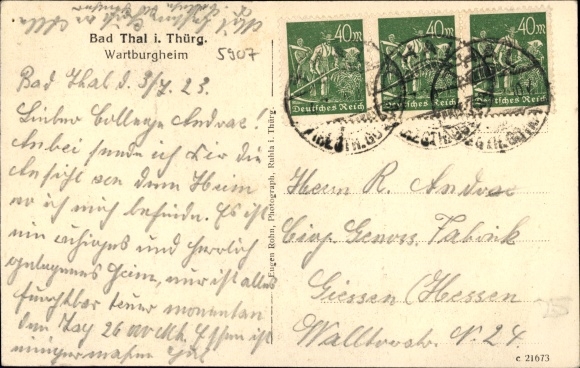 Bad Thal i. Thürg.
Wartburgheim
5907
Bad Thal d. 3/7. 23.
Lieber College Andrae!
Anbei sende ich Dir die
Ansicht von dem Heim
wo ich mich befinde. Es ist
ein ruhiges und herrlich
gelegenes Heim, nur ist alles
furchtbar teuer momentan
den Tag 26 000 Mk. Essen ist
einigermaßen gut
Eugen Rohn, Photograph, Ruhla i. Thürg.
40 M 40 M 40 M
Deutsches Reich Deutsches Reich Deutsches Reich
Herrn R. Andrae
Cig. Genoss. Fabrik
Giessen (Hessen
Walltorstr. N. 24
e 21673